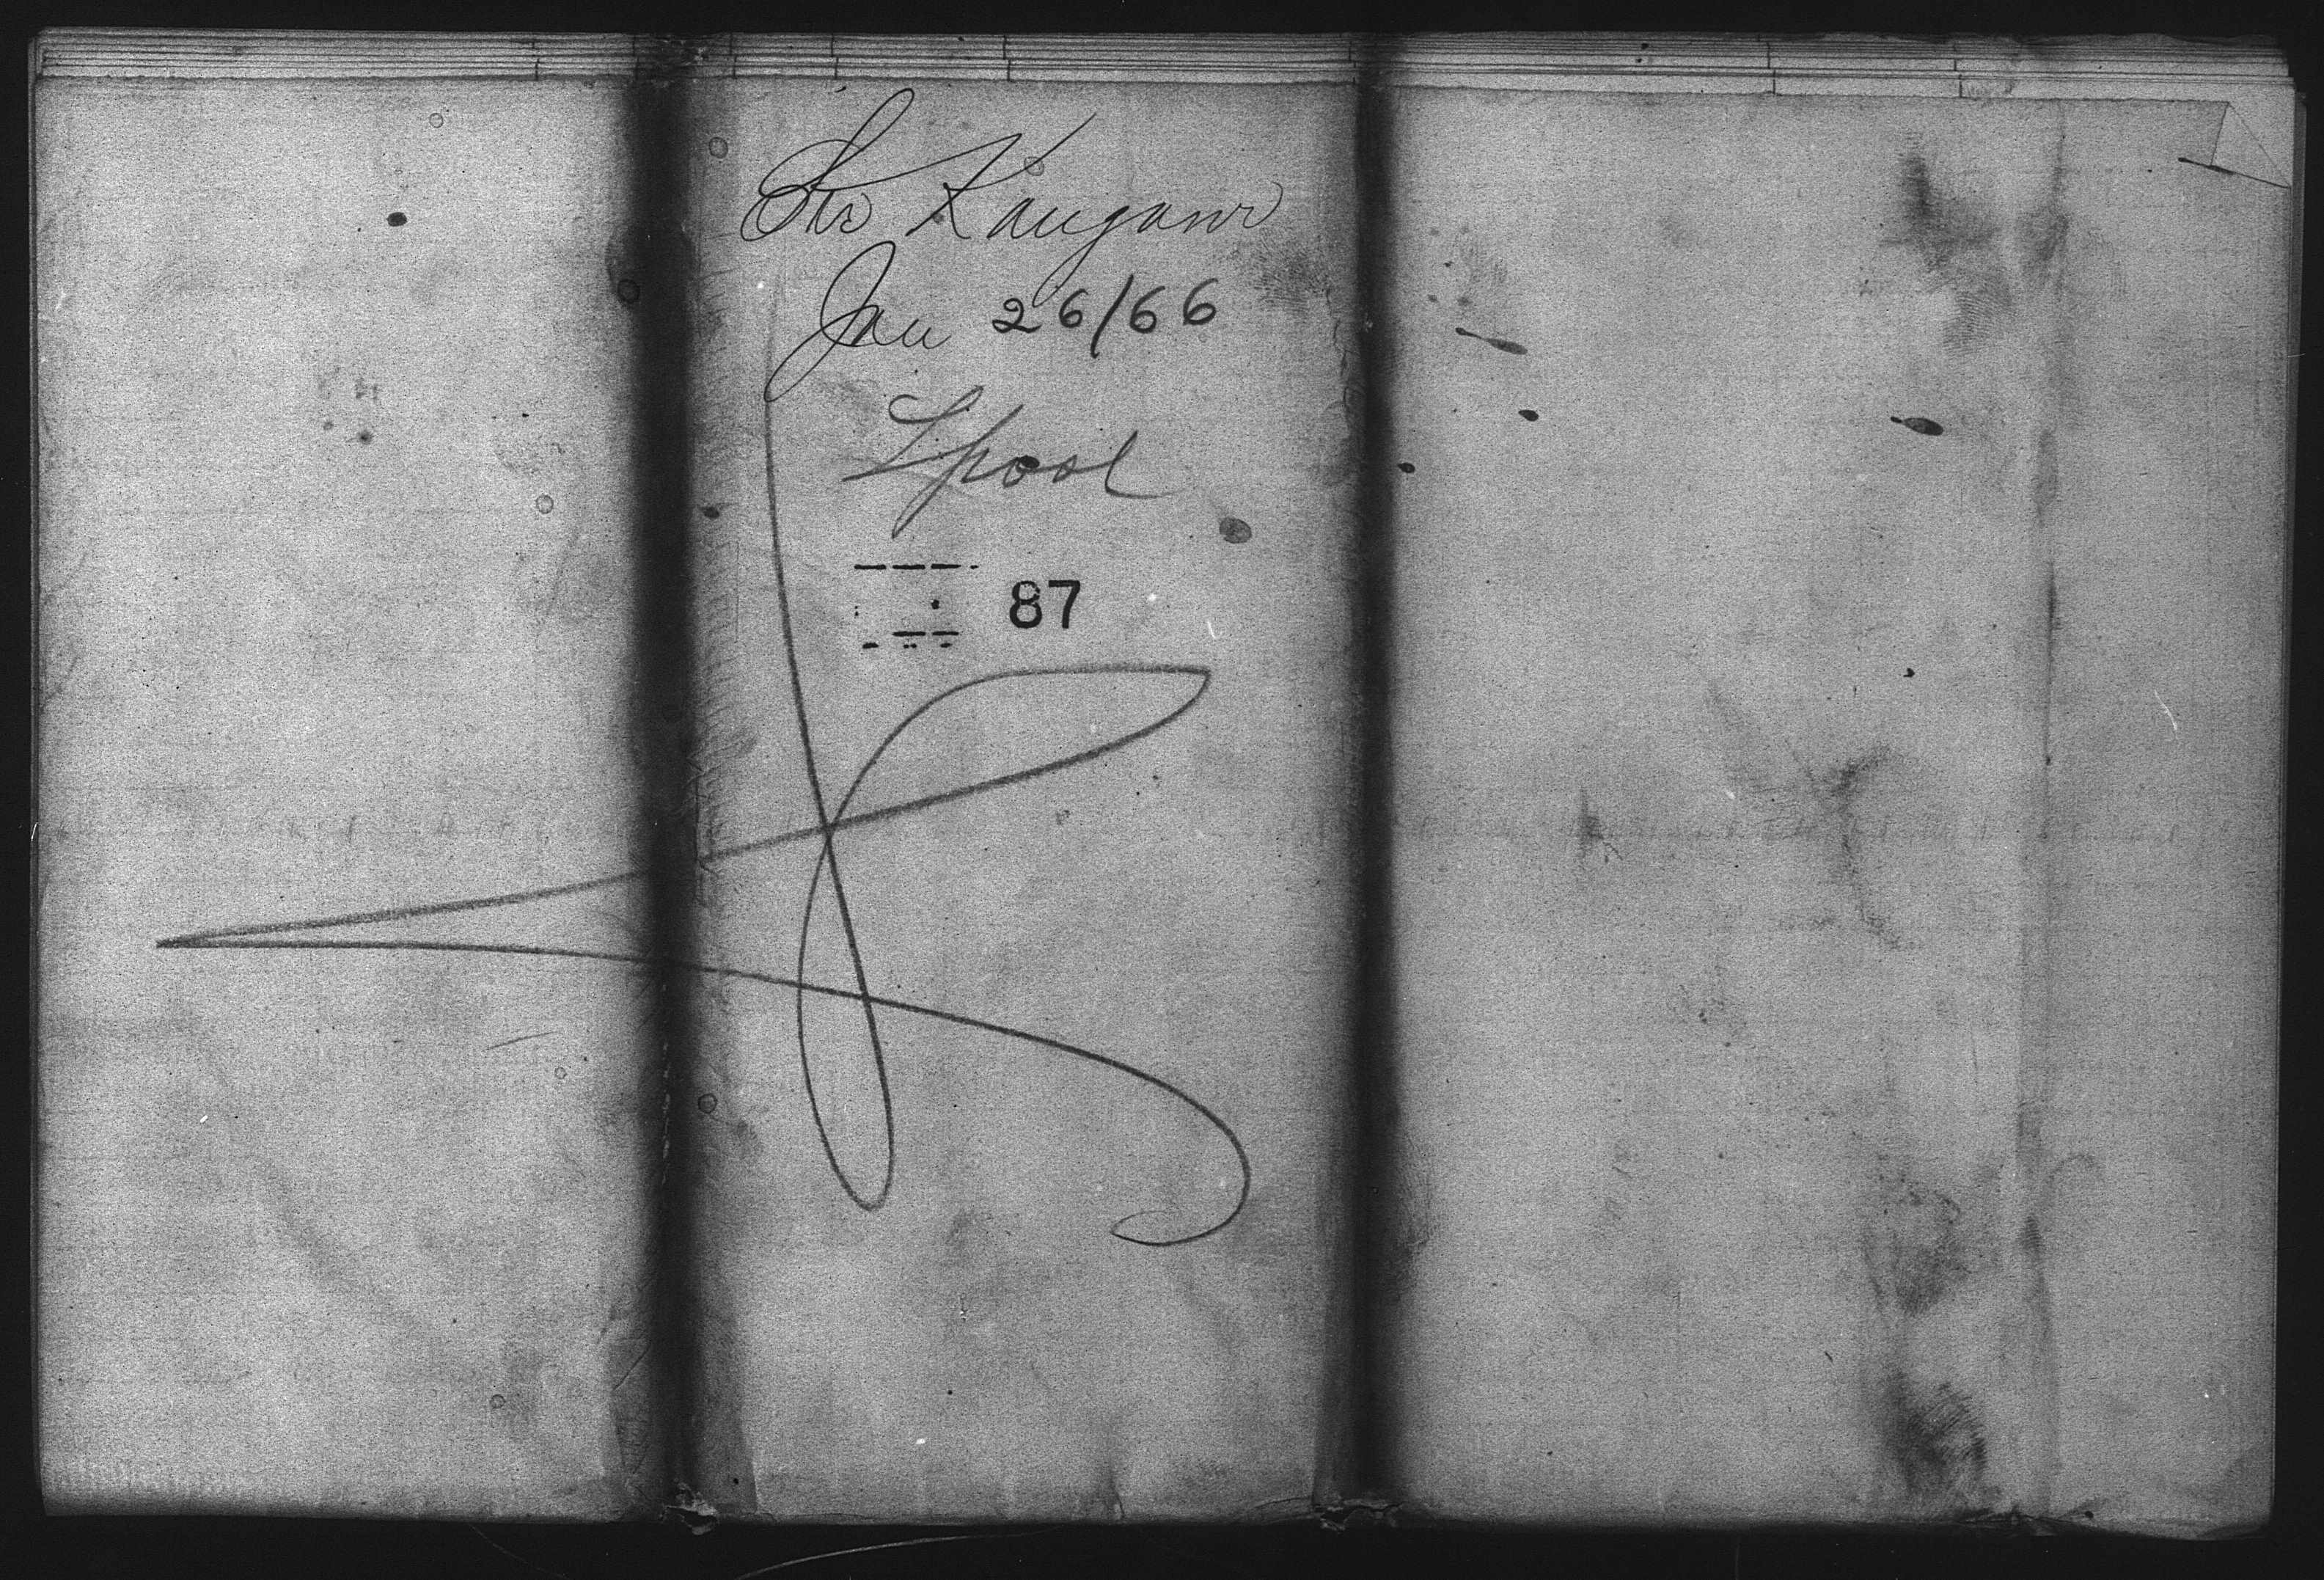 Str Kangaroo
Jan 26/66
Lpool
87